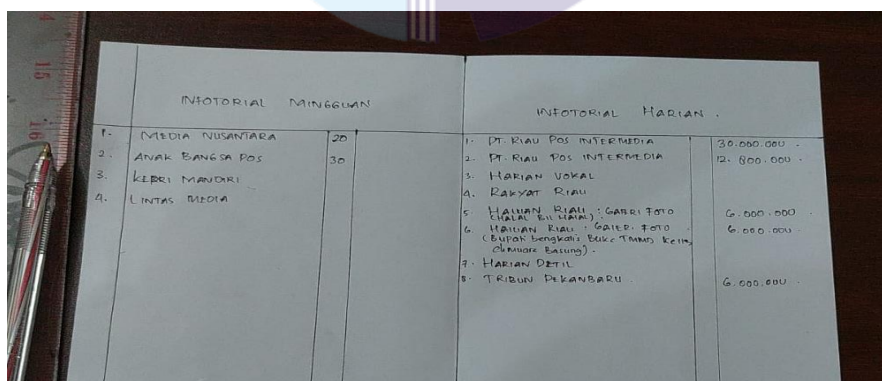 4
15
16
INFOTORIAL MINGGUAN
1. MEDIA NUSANTARA 20
2. ANAK BANGSA POS 30
3. KEPRI MANDIRI
4. LINTAS MEDIA
INFOTORIAL HARIAN.
1. PT. RIAU POS INTERMEDIA 30.000.000.
2. PT. RIAU POS INTERMEDIA 12.800.000.
3. HARIAN VOKAL
4. RAKYAT RIAU
5. HALUAN RIAU: GALERI FOTO 6.000.000.
(HALAL BIL HALAL)
6. HALUAN RIAU: GALERI FOTO 6.000.000.
(Bupati bengkalis Buka TMMD Ke
Basung).
7. HARIAN DETIL
8. TRIBUN PEKANBARU 6.000.000.